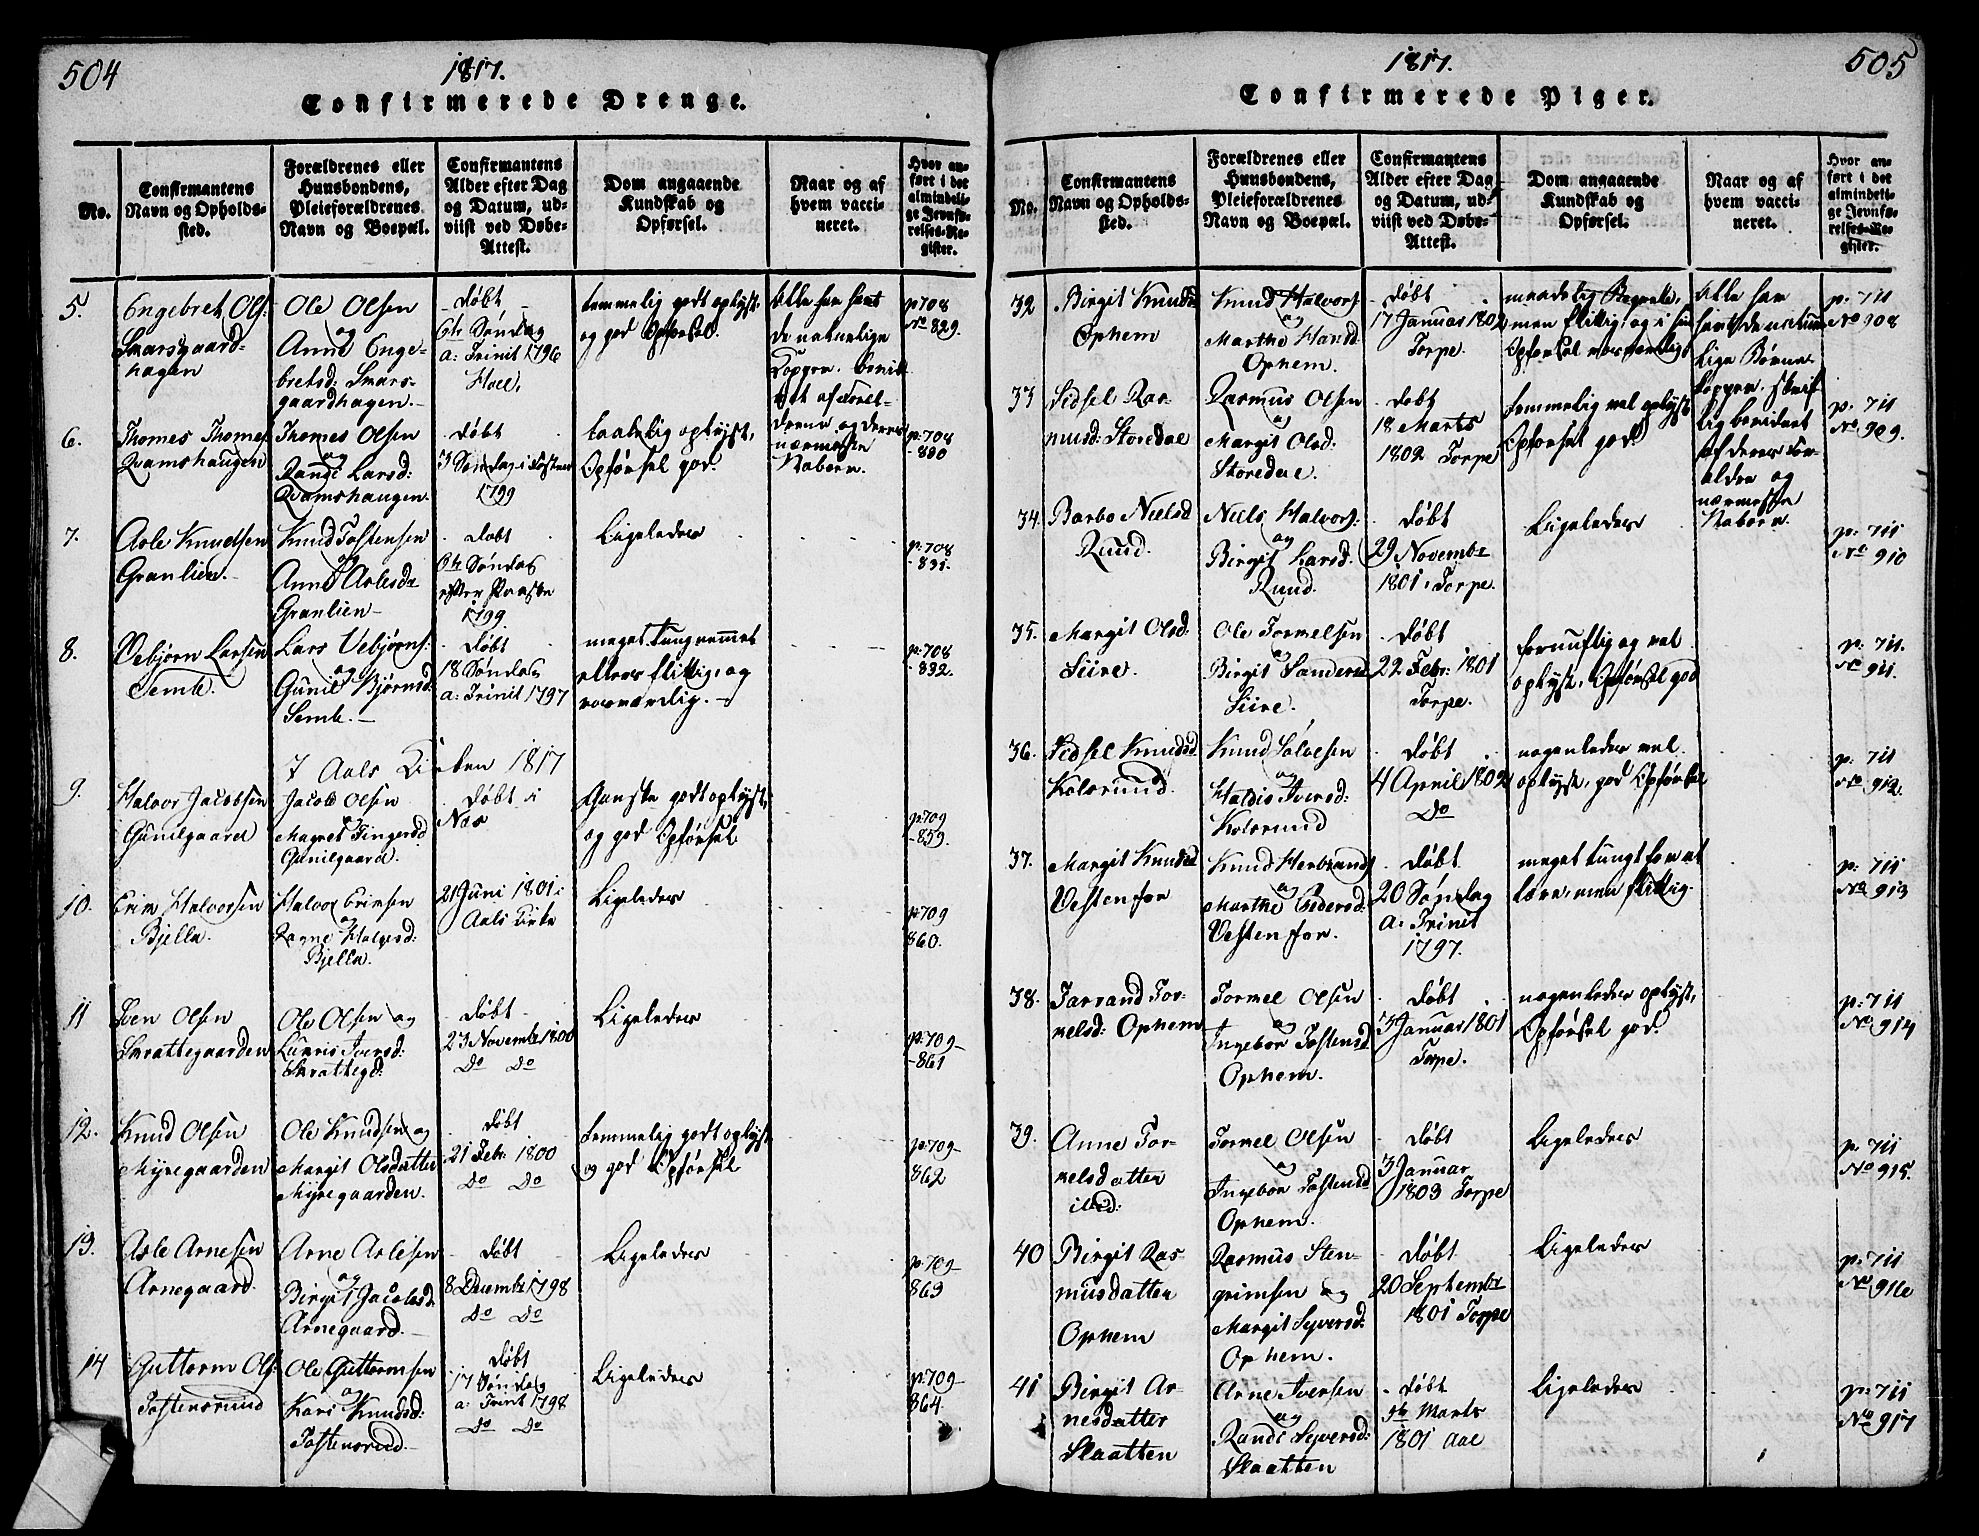 504
1817.
Confirmerede Drenge.
No.
Confirmantens
Navn og Opholds-
sted.
Forældrenes eller
Huusbondens,
Pleieforældrenes
Navn og Boepæl.
Confirmantens
Alder efter Dag
og Datum, ud-
viist ved Døbe-
Attest.
Dom angaaende
Kundskab og
Opførsel.
Naar og af
hvem vacci-
neret.
Hvor an-
ført i det
almindeli-
ge Jevnfø-
relses-Re-
gister.
5.
Engebret Ols:
Smarsgaard-
hagen
Ole Olsen
og
Anne Enge-
bretsd: Smars-
gaardhagen.
døbt
6te Søndag
a: Trinit 1796
Hoel,
temmelig godt oplyst
og god Opførsel.
Alle har havt
de naturlige
Kopper, bevid-
net af Forel-
drene og deres
nærmeste
Naboer.
p:708
No 829.
6.
Thomes Thomes
Qvamshaugen
Thomes Olsen
og
Randi Larsd:
Qvamshaugen.
døbt
3 Søndag i Fasten
1799
taalelig oplyst,
Opførsel god.
p:708
- 830
7.
Asle Knudsen
Granlien.
Knud Tostensen
og
Anne Aslesd:
Granlien
døbt
6te Søndag
efter Paaske
1799.
Ligeledes
p:708
- 831.
8.
Vebjørn Larsen
Semb.
Lars Vebjørns:
og
Gunil Bjørnsd
Semb.
døbt
18 Søndag
a: Trinit 1797
meget tungnemmet
ellers flittig, og
velværdig.
p:708
- 832.
I Aals Kirken 1817
9.
Halvor Jacobsen
Gunilgaard
Jacob Olsen
Magret Fingersd
Gunilgaard.
døbt i
Næs
Ganske godt oplyst,
og god Opførsel
p:709
- 859.
10.
Erik Halvorsen
Bjella.
Halvor Eriksen
og
Ragne Halgesd:
Bjella.
21 Juni 1801 i
Aals Kirke
Ligeledes
p:709
860.
11
Sven Olsen
Skrattegaarden
Ole Olsen og
Lukris Iversd:
Skrattegd:
døbt
23 Novembr 1800
Do Do
Ligeledes
p:709-
- 861
12.
Knud Olsen
Myregaarden
Ole Knudsen og
Margit Olsdatter
Myregaarden.
døbt
21 Febr. 1800
Do Do
temmelig godt oplyst
og god Opførsel
p:709-
862
13.
Asle Arnesen
Arnegaard.
Arne Aslesen
og
Birgit Jacobsd
Arnegaard.
døbt
8 Decembr 1798
Do Do
Ligeledes
p:709-
863
14
Guttorm Ols:
Tostensrud
Ole Guttormsen
og
Kari Knudsd:
Tostensrud.
døbt
17 Søndag
a: Trinit 1798
Do Do
Ligeledes
p:709-
864
505
1817.
Confirmerede Piger.
No.
Confirmantens
Navn og Opholds-
sted.
Forældrenes eller
Huusbondens,
Pleieforældrenes
Navn og Boepæl.
Confirmantens
Alder efter Dag
og Datum, ud-
viist ved Døbe-
Attest.
Dom angaaende
Kundskab og
Opførsel.
Naar og af
hvem vacci-
neret.
Hvor an-
ført i det
almindeli-
ge Jevnfø-
relses-Re-
gister.
32
Birgit Knudsd
Ophem
Knud Halvors.
og
Marthe Hansd
Ophem.
døbt
17 Januar 1802
Torpe.
maadelig Begreb,
men flittig, og i sin
Opførsel
Alle har
havt de natur-
lige Børne-
kopper, skrift-
lig bevidnet
af deres For-
ældre og
nærmeste
Naboer.
p: 711
No 908
33
Sidsel Ras-
musd: Storedae
Rasmus Olsen
og
Margit Olsd:
Storedae.
døbt
18 Marts
1802 Torpe
temmelig vel oplyst
Opførsel god
p: 711
No 909.
34.
Barbo Nielsd
Ruud.
Niels Halvors:
og
Birgit Larsd.
Ruud.
døbt
29 Novembr
1801 Torpe.
Ligeledes
p: 711
No 910
35.
Margit Olsd:
Siire.
Ole Tormelsen
Birgit Sandersd
Siire.
døbt
22 Febr: 1801
Torpe.
fornuftig og vel
oplyst, Opførsel god
p: 711.
No 911.
36.
Sidsel Knudsd.
Kolsrund.
Knud Sølvesen
og
Haldis Iversd:
Kolsrund
døbt
4 April 1802
Do
nogenledes vel
oplyst, god Opførsel
p: 711
No 912.
37.
Margit Knudsd
Vestenfor
Knud Herbrands
og
Marthe Endersd:
Vestenfor.
døbt
20 Søndag
a. Trinit
1797.
meget tungt for at
lære, men flittig.
p: 711
No 913
38.
Jarrand Tor-
kelsd: Ophem
Tormel Olsen
og
Ingebor Tostensd
Ophem.
døbt
3 Januar 1801
Torpe.
nogenledes oplyst,
Opførsel god.
p: 711
No 914
39.
Anne Tor-
kelsdatter
ibid:
Tormel Olsen
og
Ingebor Tostensd
Ophem.
døbt
3 Januar
1803 Torpe
Ligeledes
p: 711
No 915.
40
Birgit Ras-
musdatter
Ophem
Rasmus Sten-
grimsen og
Margit Syversd:
Ophem.
døbt
20 Septembr
1801 Torpe
Ligeledes
p: 711
No 916
41
Birgit Ar-
nesdatter
Slaatten
Arne Iversen
og
Randi Syversd:
Slaatten
døbt
Marts
1801 Aal
Ligeledes
p: 711
No 917